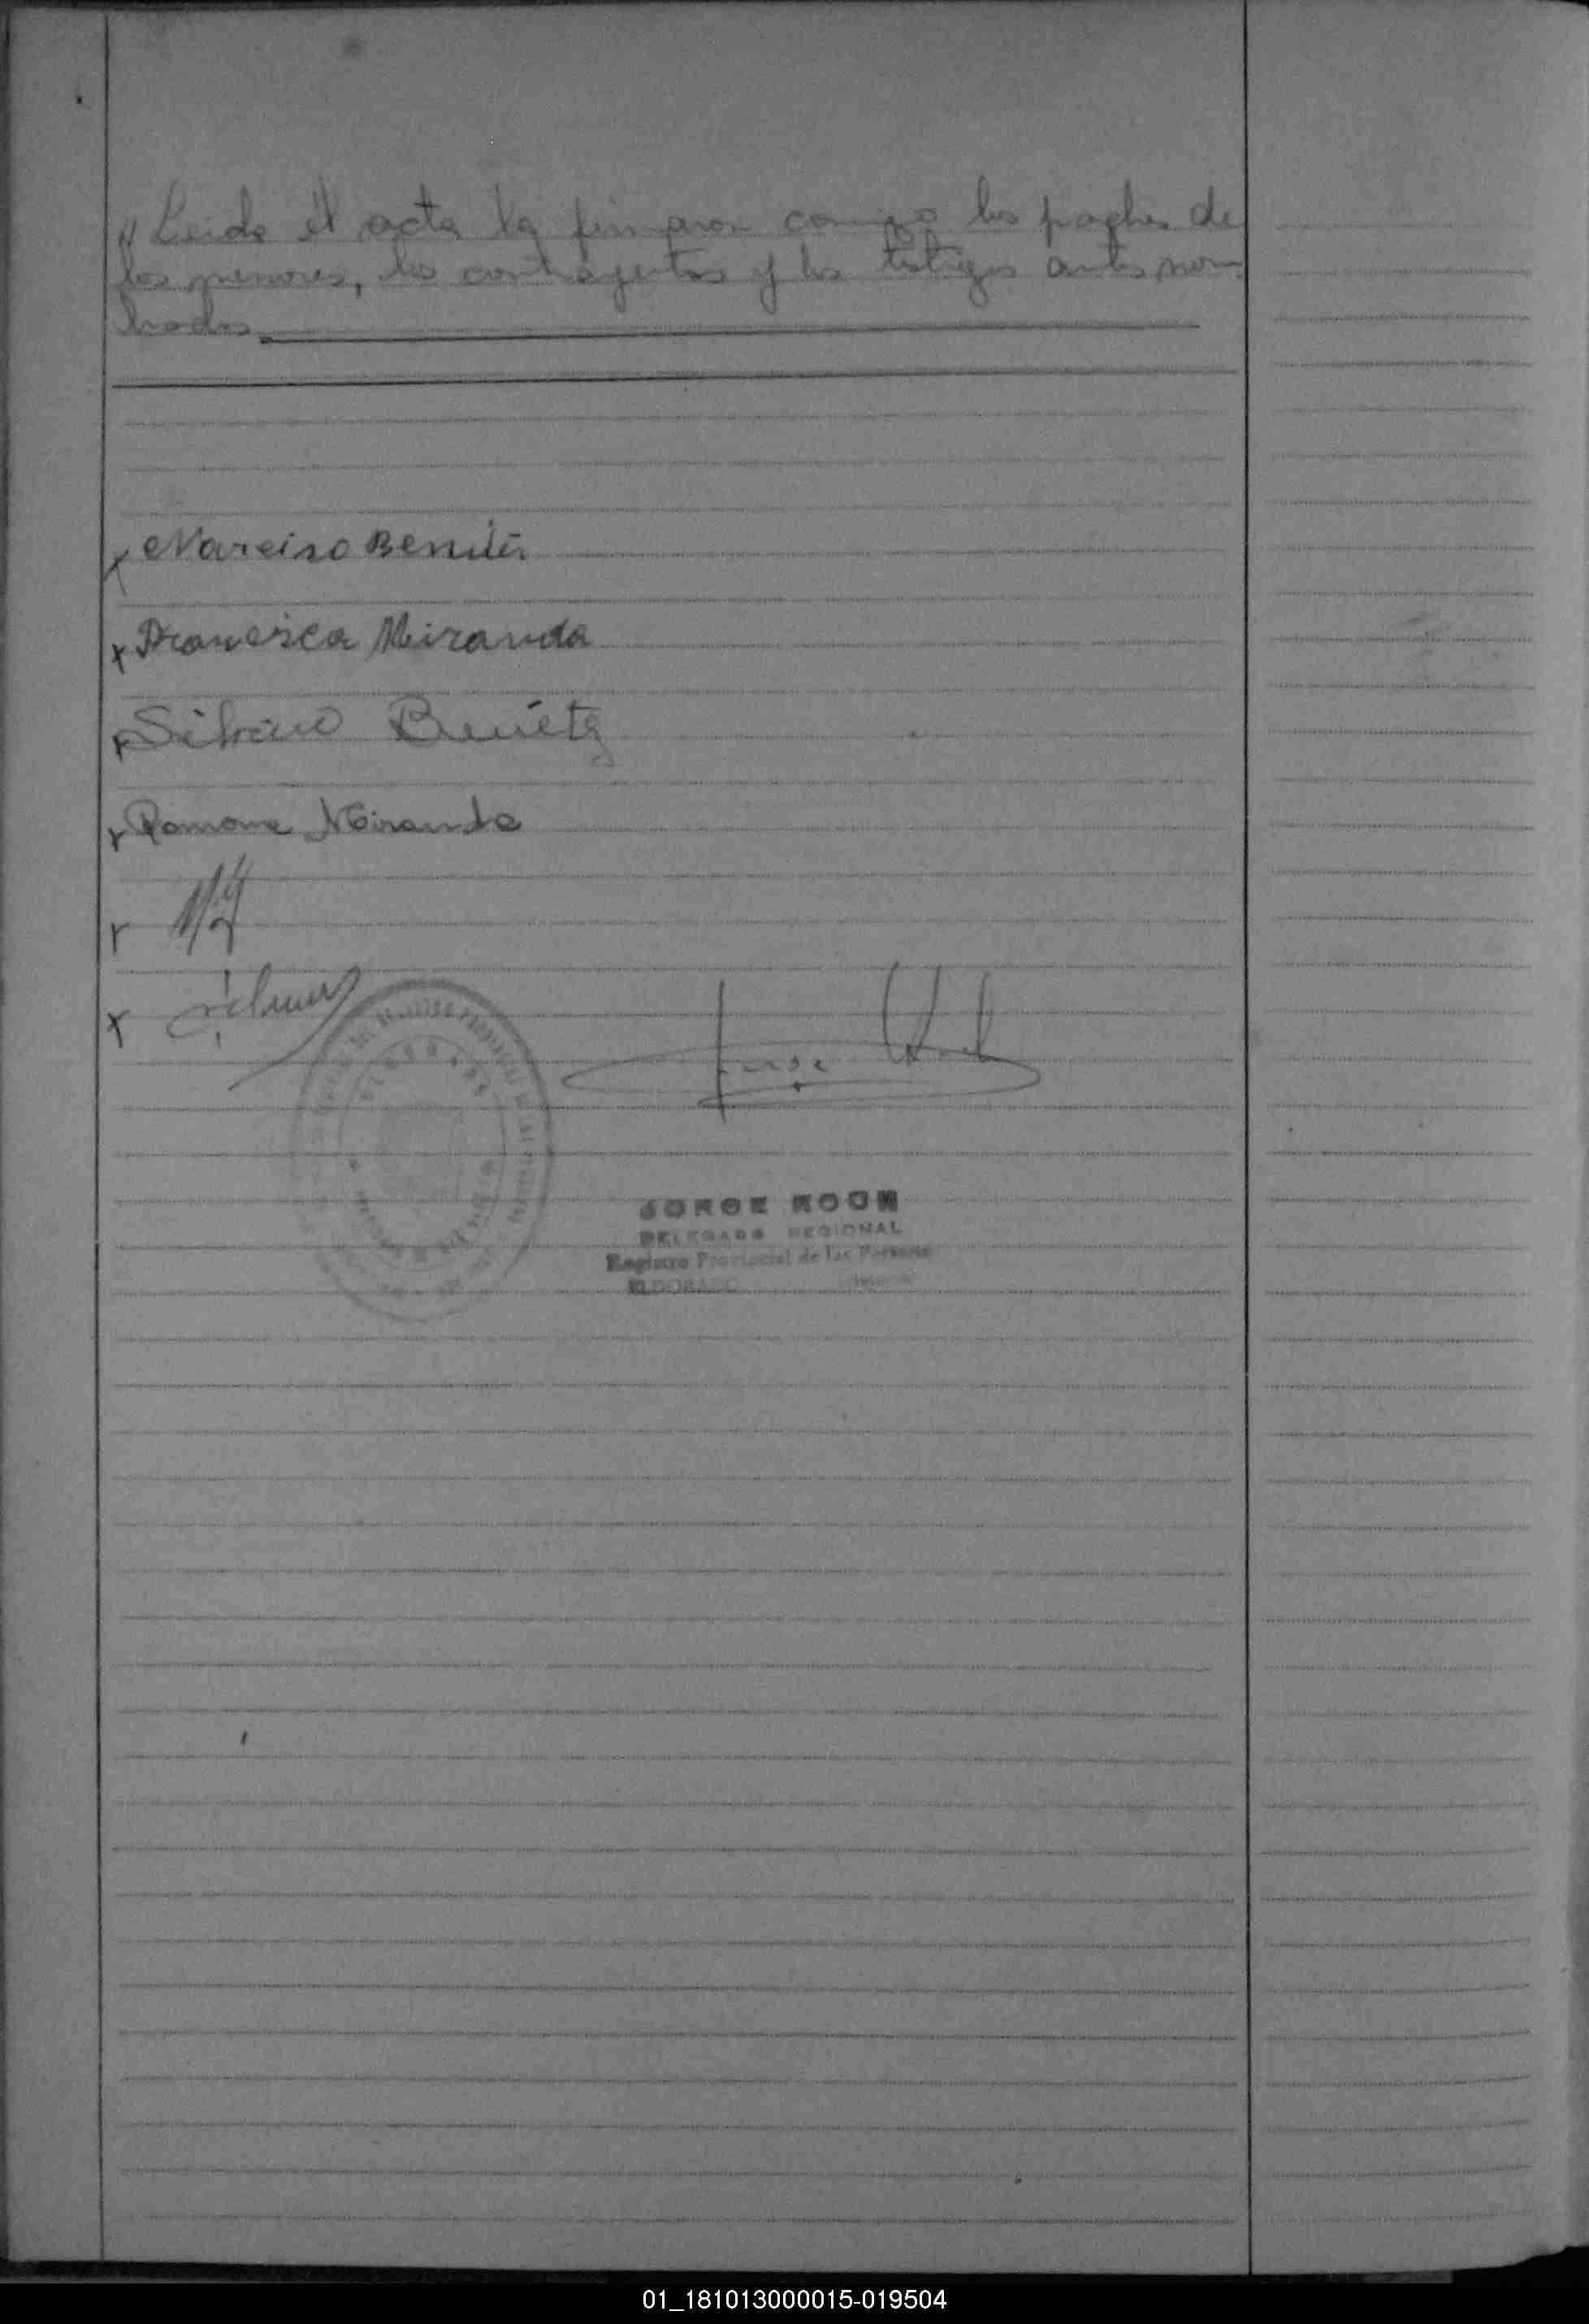 // Leida el acta la firmaron conmigo los padres de
los menores, los contrayentes y los testigos antes nom-
brados
x Narciso Benites
x Francisca Miranda
x Silvino Benitez
x Ramona Miranda
x
x
Jorge
JORGE KOCH
DELEGADO REGIONAL
Registro Provincial de las Personas
ELDORADO Misiones
ELDORADO
01_181013000015-019504